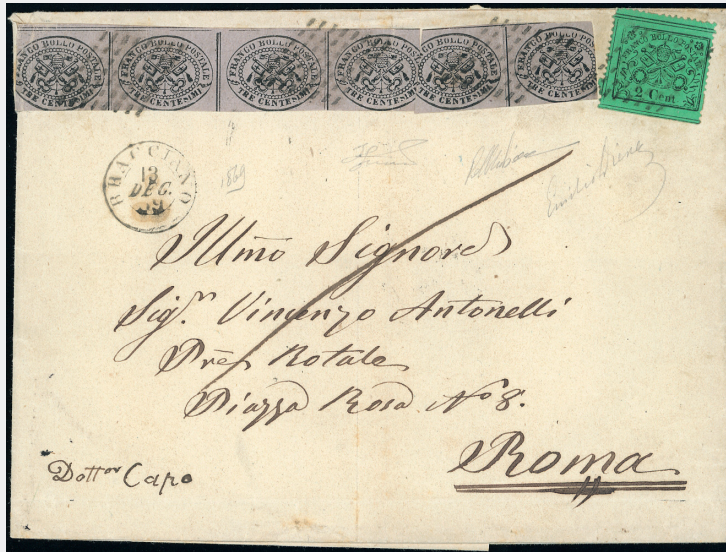 FRANCO BOLLO POSTALE TRE CENTESIMI
FRANCO BOLLO POSTALE TRE CENTESIMI
FRANCO BOLLO POSTALE TRE CENTESIMI
FRANCO BOLLO POSTALE TRE CENTESIMI
FRANCO BOLLO POSTALE TRE CENTESIMI
FRANCO BOLLO POSTALE TRE CENTESIMI
FRANCO BOLLO
2 Cent
BRACCIANO
13
DEC.
69
1869
Emilio Diena
Illmo Signore
Sigr. Vincenzo Antonelli
Pre Rotale
Piazza Rosa No 8.
Roma
Dottor Capo